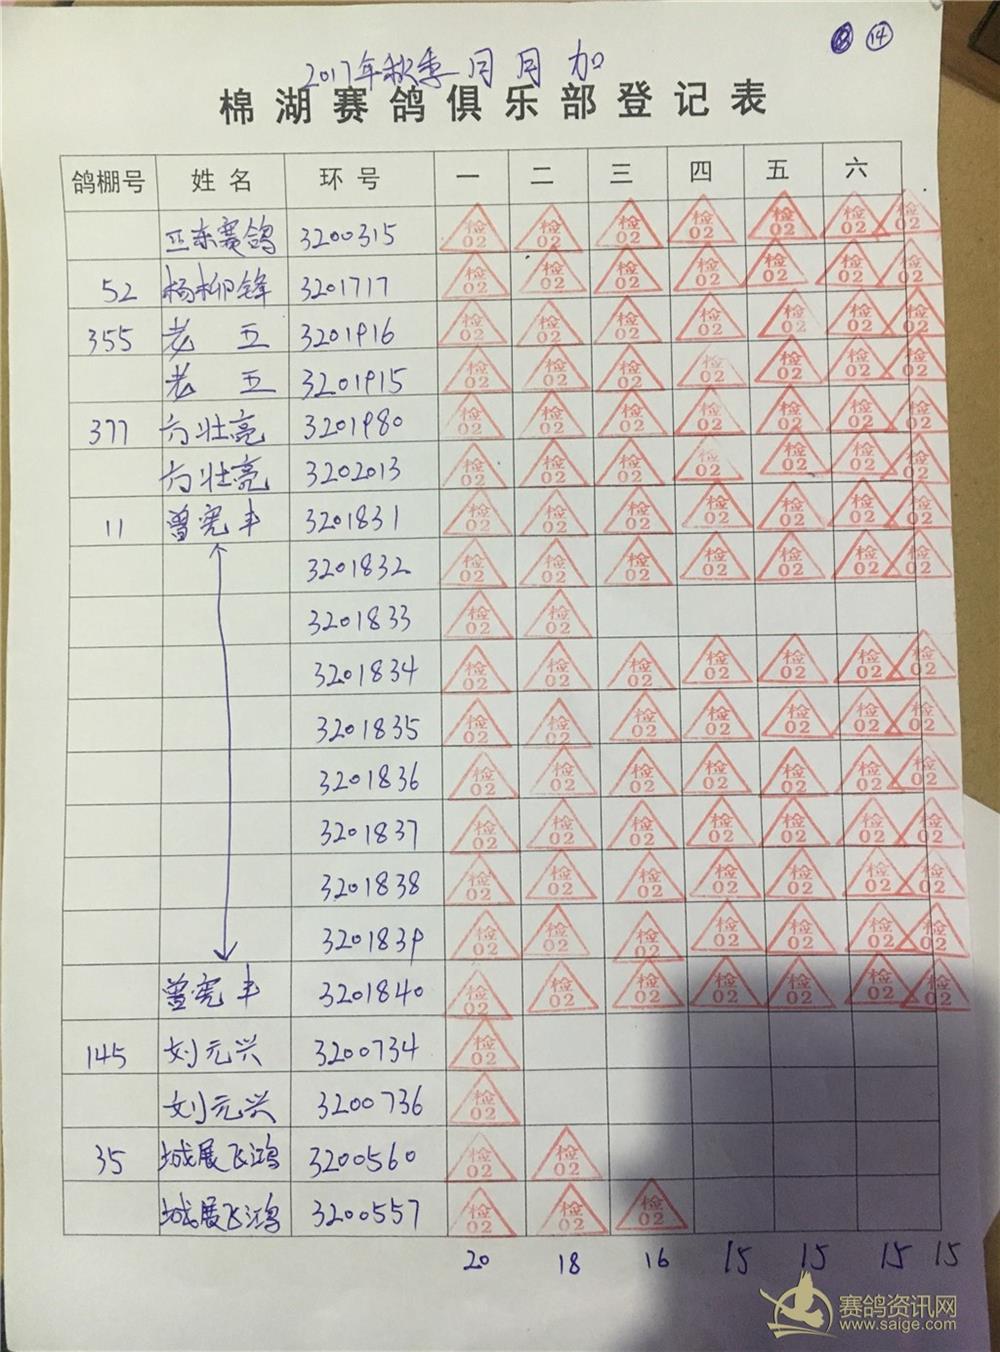 14
2017年秋季 月月加
棉湖赛鸽俱乐部登记表
鸽棚号 姓名 环号 一 二 三 四 五 六
东赛鸽 3200315 检02 检02 检02 检02 检02 检02 检02
52 杨柳锋 3201717 检02 检02 检02 检02 检02 检02 检02
355 老五 3201916 检02 检02 检02 检02 检02 检02 检02
老五 3201915 检02 检02 检02 检02 检02 检02 检02
377 方壮亮 3201980 检02 检02 检02 检02 检02 检02 检02
方壮亮 3202013 检02 检02 检02 检02 检02 检02 检02
11 曾宪丰 3201831 检02 检02 检02 检02 检02 检02 检02
3201832 检02 检02 检02 检02 检02 检02 检02
3201833 检02 检02
3201834 检02 检02 检02 检02 检02 检02 检02
3201835 检02 检02 检02 检02 检02 检02 检02
3201836 检02 检02 检02 检02 检02 检02 检02
3201837 检02 检02 检02 检02 检02 检02 检02
3201838 检02 检02 检02 检02 检02 检02 检02
3201839 检02 检02 检02 检02 检02 检02 检02
曾宪丰 3201840 检02 检02 检02 检02 检02 检02 检02
145 刘元兴 3200734 检02
刘元兴 3200736 检02
35 城展飞鸿 3200560 检02 检02
城展飞鸿 3200557 检02 检02 检02
20 18 16 15 15 15 15
赛鸽资讯网
www.saige.com